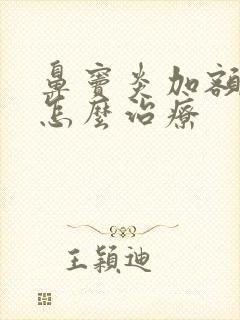 鼻竇炎加額
怎麼治療
王穎迪